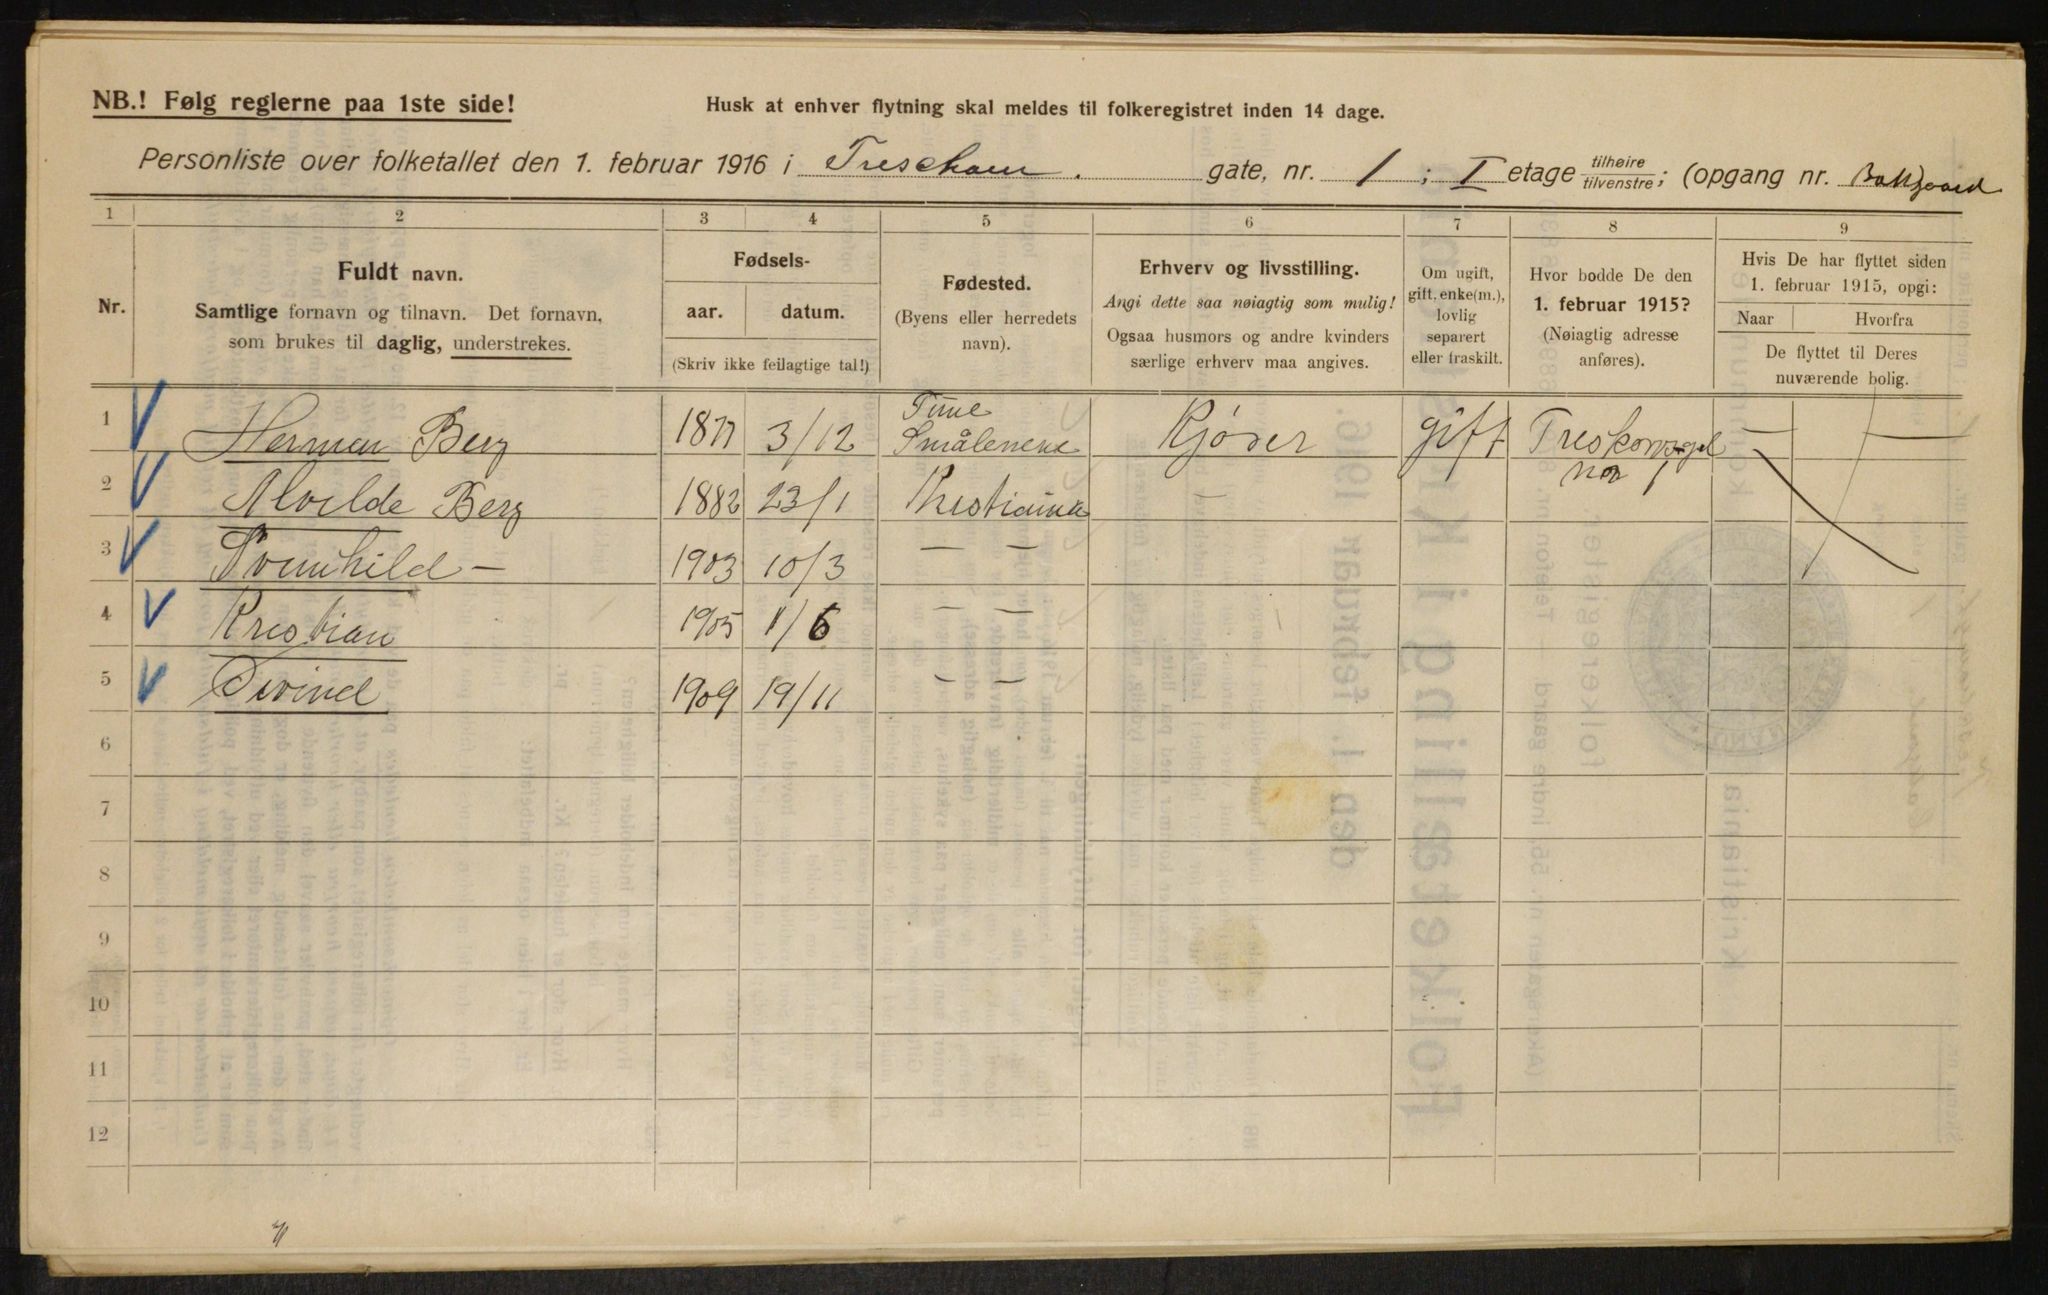 NB.! Følg reglerne paa 1ste side!
Husk at enhver flytning skal meldes til folkeregistret inden 14 dage.
Personliste over folketallet den 1. februar 1916 i Treschow gate, nr. 1 ; I etage tilhøire/tilvenstre; (opgang nr. Bakgaard
1 2 3 4 5 6 7 8 9
Nr.
Fuldt navn.
Samtlige fornavn og tilnavn. Det fornavn,
som brukes til daglig, understrekes.
Fødsels-
aar. datum.
(Skriv ikke feilagtige tal!)
Fødested.
(Byens eller herredets
navn).
Erhverv og livsstilling.
Angi dette saa nøiagtig som mulig!
Ogsaa husmors og andre kvinders
særlige erhverv maa angives.
Om ugift,
gift, enke(m.),
lovlig
separert
eller fraskilt.
Hvor bodde De den
1. februar 1915?
(Nøiagtig adresse
anføres).
Hvis De har flyttet siden
1. februar 1915, opgi:
Naar Hvorfra
De flyttet til Deres
nuværende bolig.
1 Herman Berg 1877 3/12 Tune Smålenene Kjører gift — —
2 Alvilde Berg 1882 23/1 Kristiania —
3 — 1903 10/3 — —
4 Kristian 1905 1/6 — —
5 Eivind 1909 19/11 — —
6
7
8
9
10
11
12